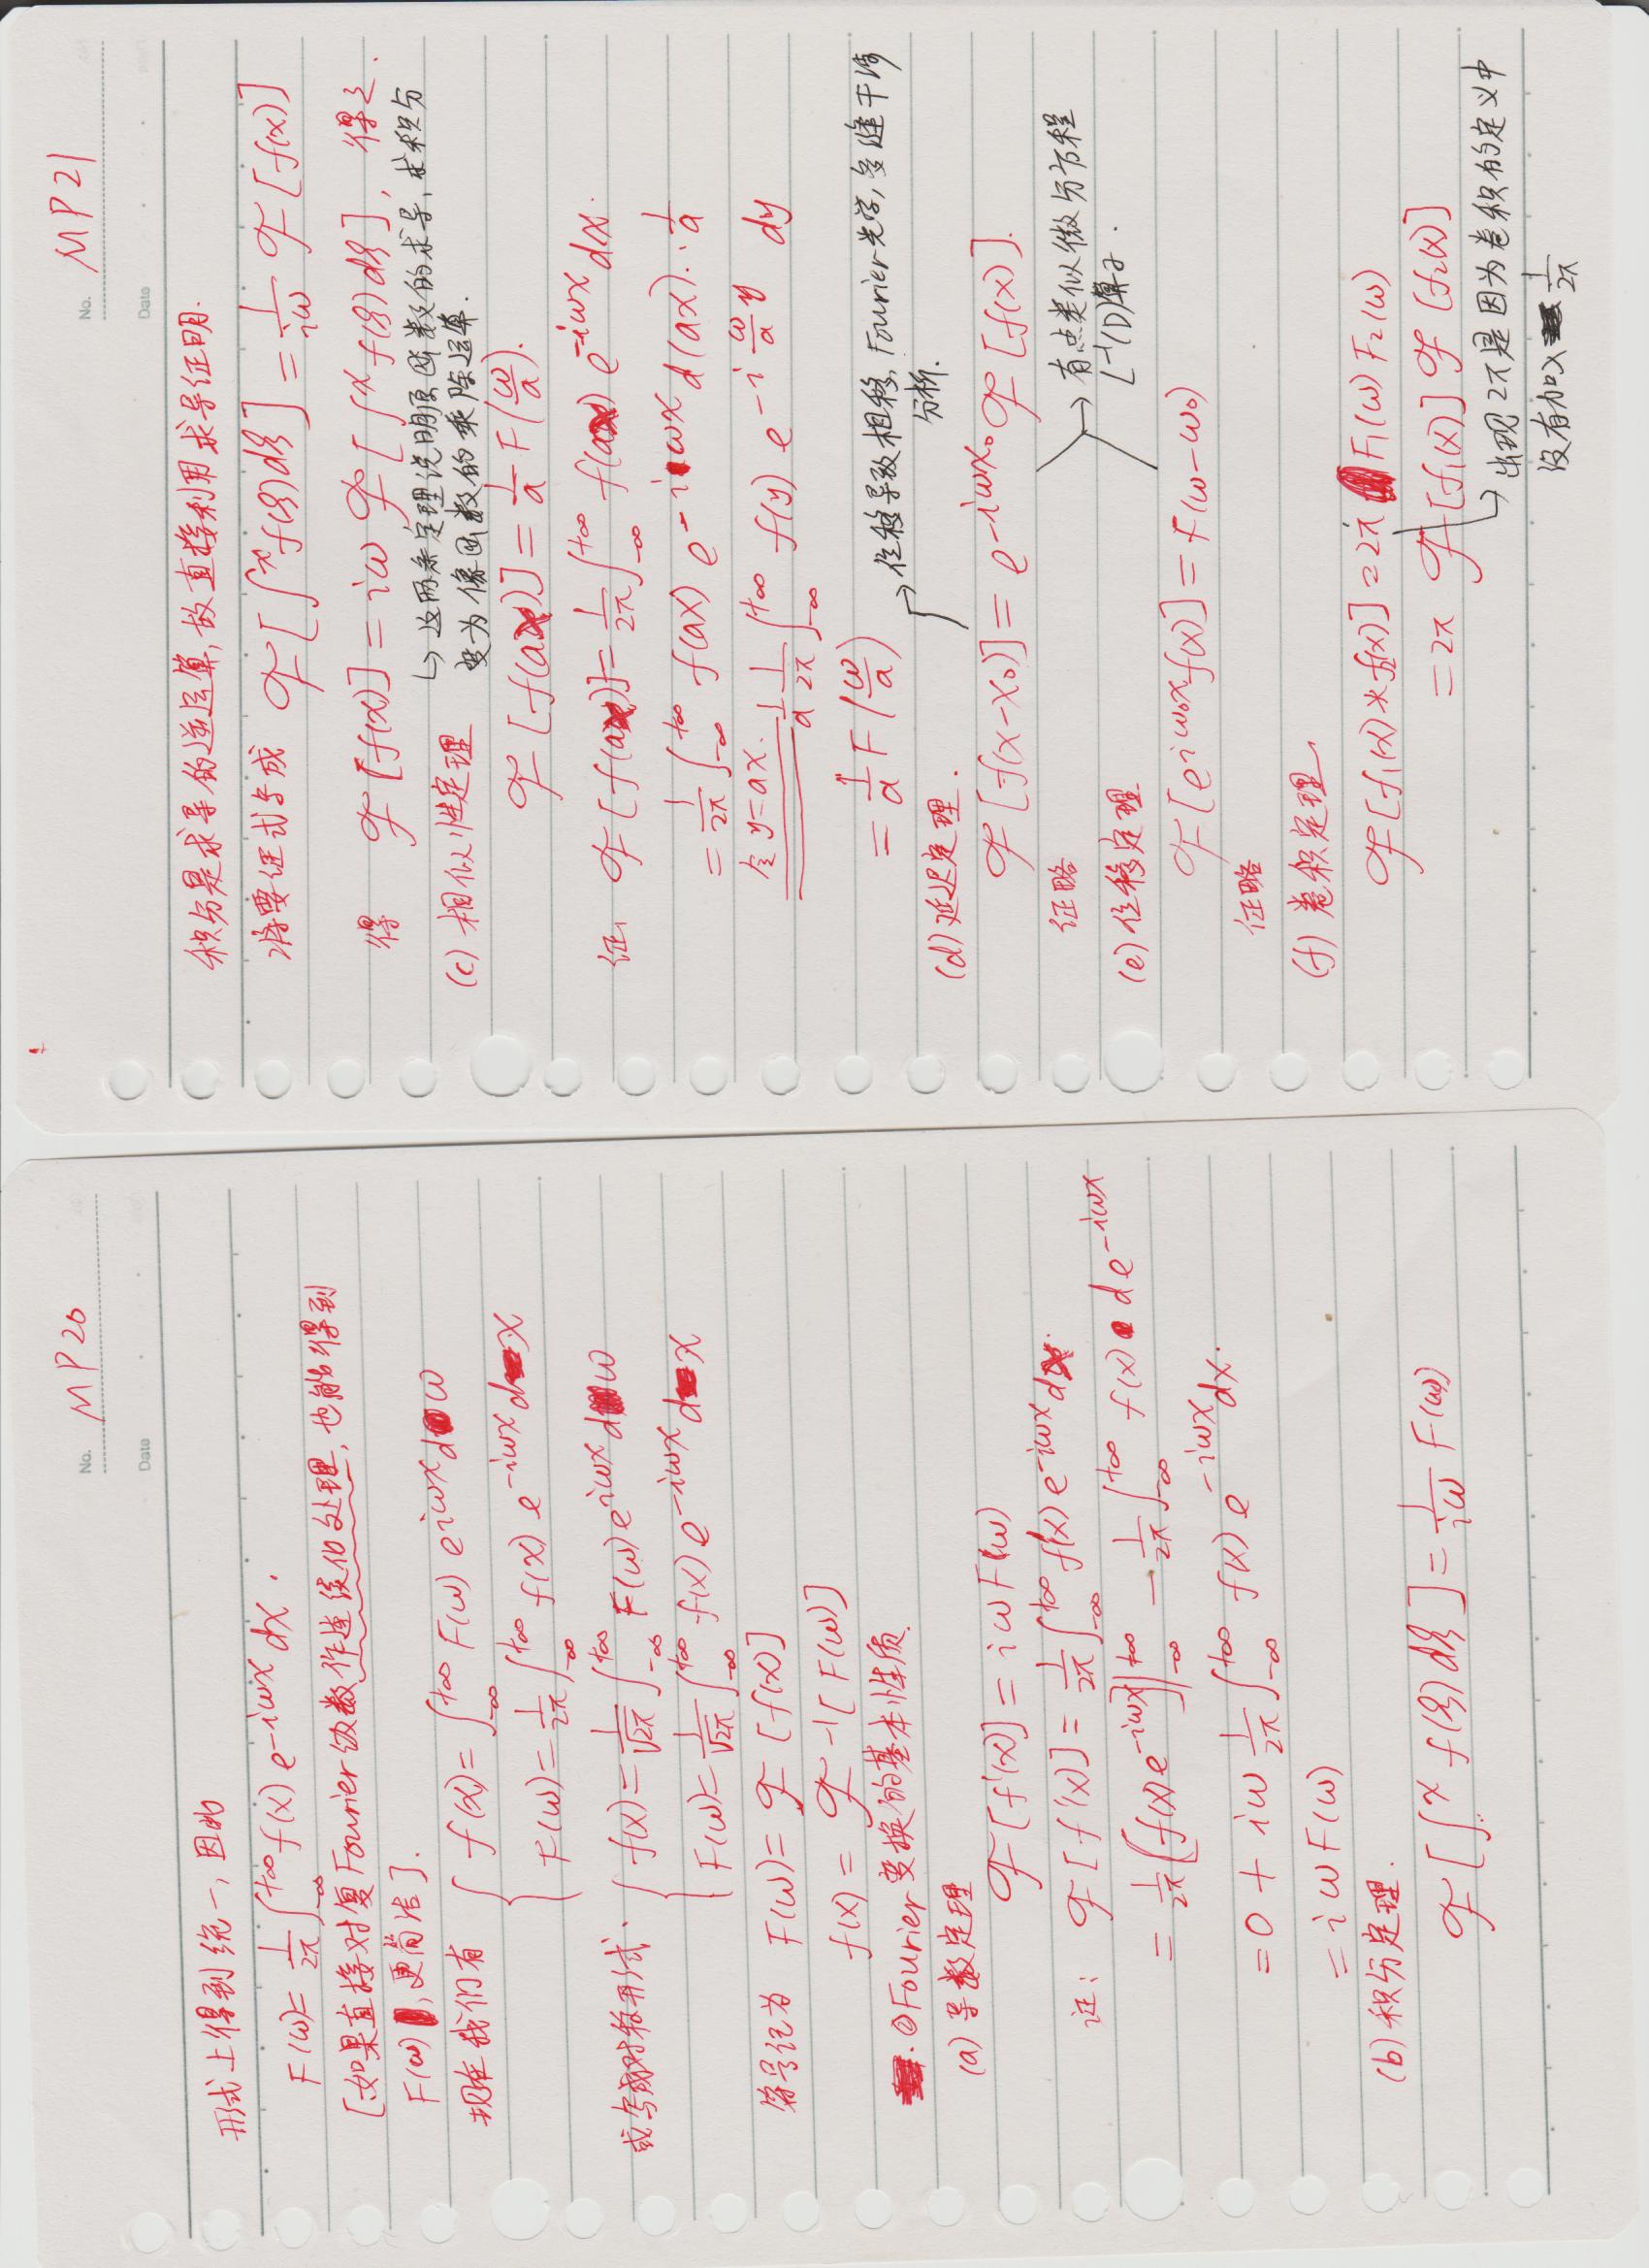 No. MP20
Date
形式上得到统一,因此
F(ω)= 1/2π ∫_{-∞}^{+∞} f(x) e^{-iωx} dx.
[如果直接对复Fourier级数作连续化处理,也能得到
F(ω),更简洁].
现在我们有 { f(x)= ∫_{-∞}^{+∞} F(ω) e^{iωx} dω
F(ω)= 1/2π ∫_{-∞}^{+∞} f(x) e^{-iωx} dx
或写成对称形式. { f(x)= 1/√2π ∫_{-∞}^{+∞} F(ω) e^{iωx} dω
F(ω)= 1/√2π ∫_{-∞}^{+∞} f(x) e^{-iωx} dx
符号记为 F(ω)= ℱ [f(x)]
f(x) = ℱ^{-1}[F(ω)]
②Fourier变换的基本性质.
(a) 导数定理
ℱ[f'(x)] = iωF(ω)
证: ℱ[f'(x)] = 1/2π ∫_{-∞}^{+∞} f'(x) e^{-iωx} dx.
= 1/2π [f(x)e^{-iωx}]|_{-∞}^{+∞} - 1/2π ∫_{-∞}^{+∞} f(x) de^{-iωx}
=0 + iω 1/2π ∫_{-∞}^{+∞} f(x) e^{-iωx} dx.
= iωF(ω)
(b) 积分定理.
ℱ[∫^x f(ξ)dξ] = 1/iω F(ω)
No. MP21
Date
积分是求导的逆运算,故直接利用求导证明.
将要证式写成 ℱ[∫^x f(ξ)dξ] = 1/iω ℱ[f(x)]
得 ℱ[f(x)] = iω ℱ[∫^x f(ξ)dξ], 得之.
↳ 这两条定理说明原函数的求导,求积分
变为像函数的乘除运算.
(c) 相似性定理
ℱ[f(ax)] = 1/a F(ω/a).
证, ℱ[f(ax)] = 1/2π ∫_{-∞}^{+∞} f(ax) e^{-iωx} dx.
= 1/2π ∫_{-∞}^{+∞} f(ax) e^{-iωx} d(ax)·1/a
令y=ax. 1/a 1/2π ∫_{-∞}^{+∞} f(y) e^{-i ω/a y} dy
= 1/a F(ω/a)
→ 位移导致相移, Fourier光学, 多缝干涉
分析.
(d) 延迟定理.
ℱ[f(x-x₀)] = e^{-iωx₀} ℱ[f(x)].
证略
→ 有点类似微分方程
L^{-1}(D)算子.
(e) 位移定理
ℱ[e^{iω₀x}f(x)] = F(ω-ω₀)
证略
(f) 卷积定理.
ℱ[f₁(x)*f₂(x)] = 2π F₁(ω) F₂(ω)
= 2π ℱ[f₁(x)] ℱ[f₂(x)]
↳ 出现2π是因为卷积的定义中
没有加入 1/2π